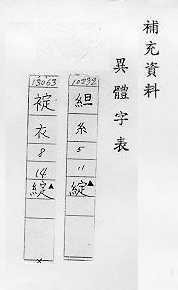 補充資料
異體字表
10232
組
糸
5
11
綻▲
13063
袨
衣
8
14
綻▲
×